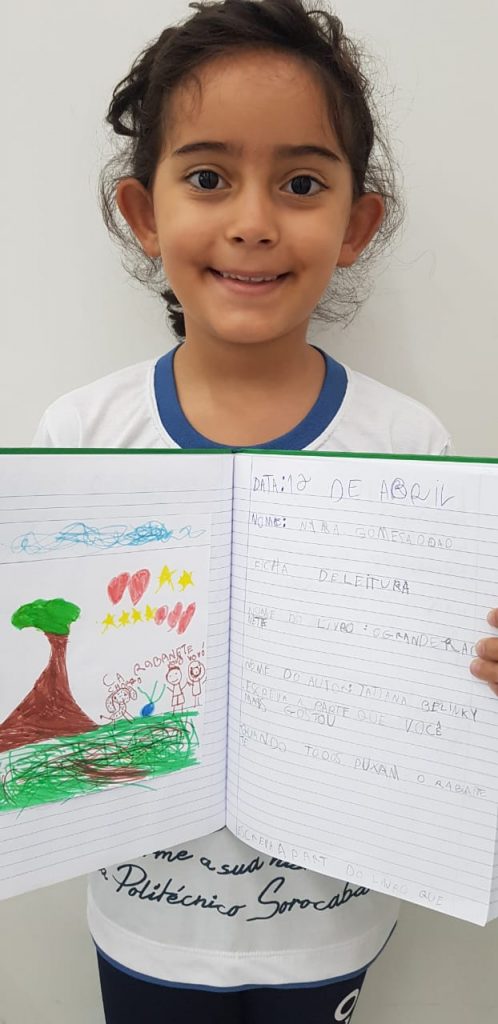 CA RABANETE
DATA: 12 DE ABRIL
NOME:
FICHA DE LEITURA
NOME DO LIVRO: O GRANDE RAC
NETE
NOME DO AUTOR: TATIANA BELINKY
ESCREVA A PARTE QUE VOCÊ
MAIS GOSTOU
QUANDO TODOS PUXAM O RABANE
TE
DO LIVRO QUE
me a sua
Politécnico Sorocaba